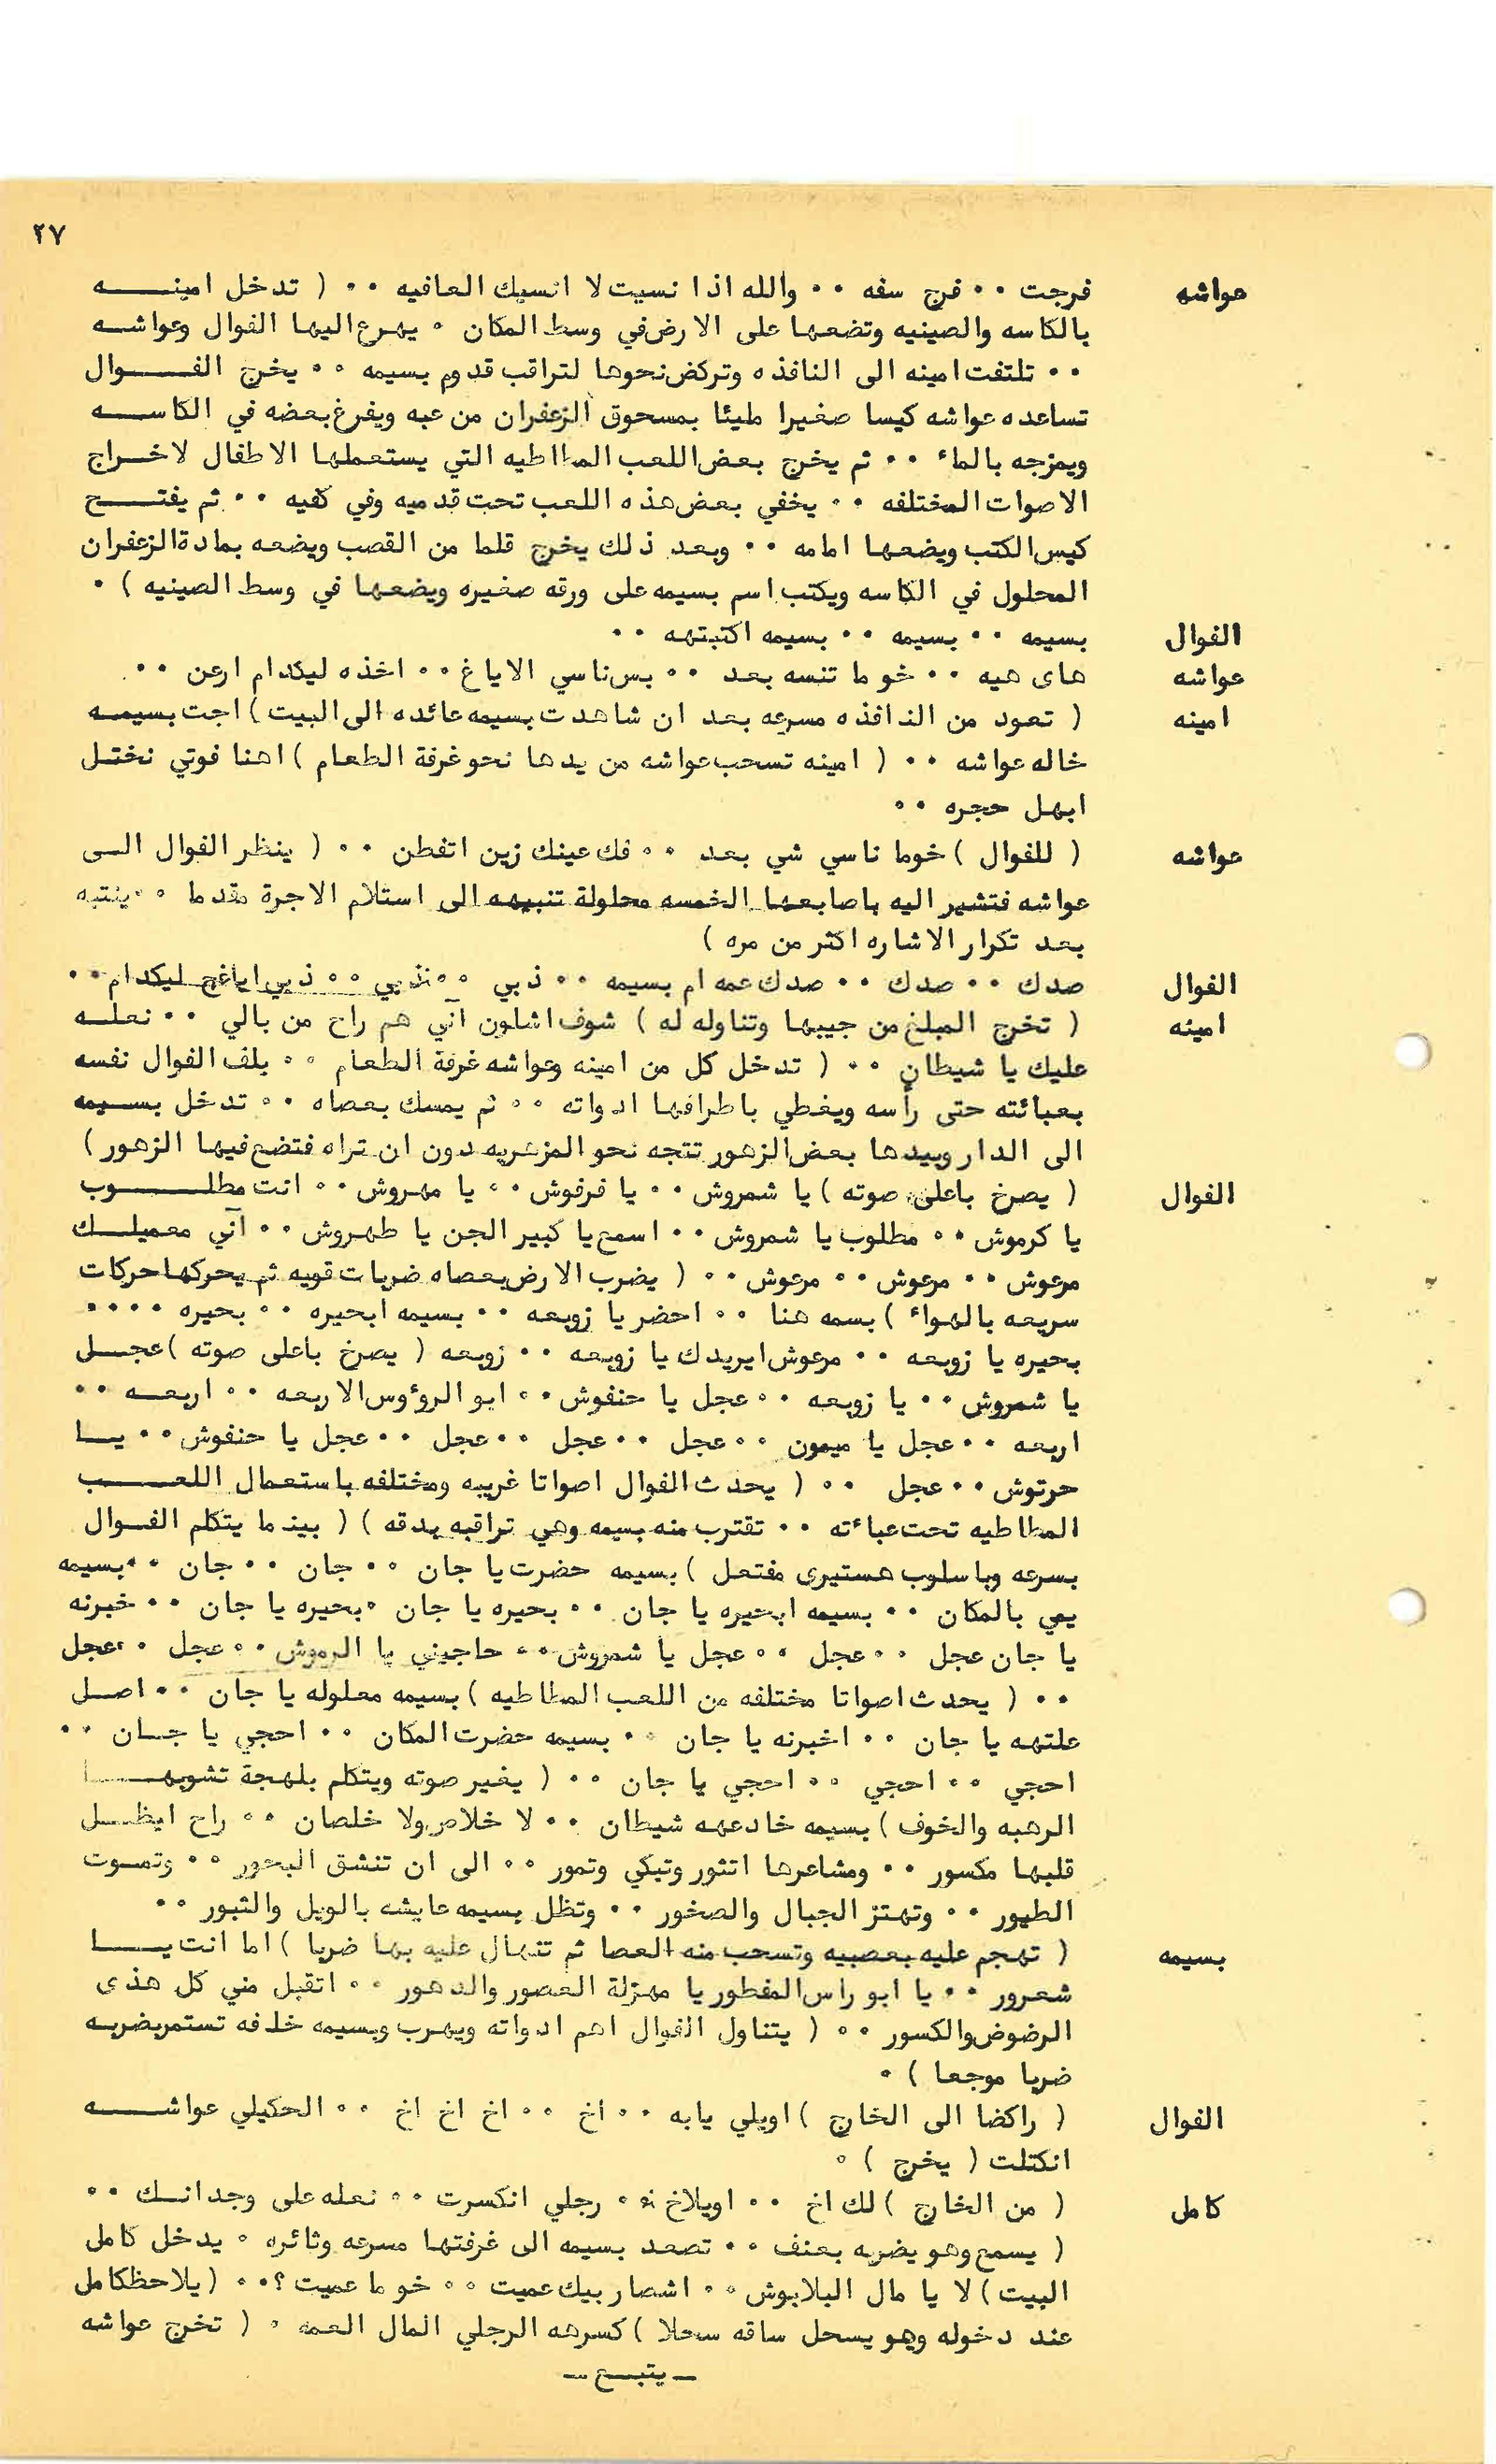 ٢٧
عواشه فرجت ٠٠ فرج سفه ٠٠ والله اذا نسيت لا انسيك العافيه ٠٠ ( تدخل امينه
بالكاسه والصينيه وتضعها على الارض في وسط المكان ٠ يهرع اليها الفوال وعواشه
٠٠ تلتفت امينه الى النافذه وتركض نحوها لتراقب قدوم بسيمه ٠٠ يخرج الفوال
تساعده عواشه كيسا صغيرا مليئا بمسحوق الزعفران من عبه ويفرغ بعضه في الكاسه
ويمزجه بالماء ٠٠ ثم يخرج بعض اللعب المطاطيه التي يستعملها الاطفال لاخراج
الاصوات المختلفه ٠٠ يخفي بعض هذه اللعب تحت قدميه وفي كفيه ٠٠ ثم يفتح
كيس الكتب ويضعها امامه ٠٠ وبعد ذلك يخرج قلما من القصب ويضعه بمادة الزعفران
المحلول في الكاسه ويكتب اسم بسيمه على ورقه صغيره ويضعها في وسط الصينيه ) ٠
الفوال بسيمه ٠٠ بسيمه ٠٠ بسيمه اكتبتهه ٠٠
عواشه هاى هيه ٠٠ خو ما تنسه بعد ٠٠ بس ناسي الاياغ ٠٠ اخذه ليكدام ارعن ٠٠
امينه ( تعود من النافذه مسرعه بعد ان شاهدت بسيمه عائده الى البيت ) اجت بسيمه
خاله عواشه ٠٠ ( امينه تسحب عواشه من يدها نحو غرفة الطعام ) اهنا فوتي نختل
ابهل حجره ٠٠
عواشه ( للفوال ) خوما ناسي شي بعد ٠٠ فك عينك زين اتفطن ٠٠ ( ينظر الفوال الى
عواشه فتشير اليه باصابعها الخمسه محلولة تنبيهه الى استلام الاجرة مقدما ٠٠ ينتبه
بعد تكرار الاشاره اكثر من مره )
الفوال صدك ٠٠ صدك ٠٠ صدك عمه ام بسيمه ٠٠ ذبي ٠٠ ذبي ٠٠ ذبي اياغج ليكدام ٠٠
امينه ( تخرج المبلغ من جيبها وتناوله له ) شوف اشلون آني هم راح من بالي ٠٠ نعله
عليك يا شيطان ٠٠ ( تدخل كل من امينه وعواشه غرفة الطعام ٠٠ يلف الفوال نفسه
بعبائته حتى رأسه ويغطي باطرافها ادواته ٠٠ ثم يمسك بعصاه ٠٠ تدخل بسيمه
الى الدار وبيدها بعض الزهور تتجه نحو المزهريه دون ان تراه فتضع فيها الزهور )
الفوال ( يصرخ باعلى صوته ) يا شمروش ٠٠ يا فرفوش ٠٠ يا مهروش ٠٠ انت مطلوب
يا كرموش ٠٠ مطلوب يا شمروش ٠٠ اسمع يا كبير الجن يا طهروش ٠٠ آني معميلك
مرعوش ٠٠ مرعوش ٠٠ مرعوش ٠٠ ( يضرب الارض بعصاه ضربات قويه ثم يحركها حركات
سريعه بالهواء ) بسمه هنا ٠٠ احضر يا زوبعه ٠٠ بسيمه ابحيره ٠٠ بحيره ٠٠٠٠
بحيره يا زوبعه ٠٠ مرعوش ايريدك يا زوبعه ٠٠ زوبعه ( يصرخ باعلى صوته ) عجل
يا شمروش ٠٠ يا زوبعه ٠٠ عجل يا حنفوش ٠٠ ابو الرؤوس الاربعه ٠٠ اربعه ٠٠
اربعه ٠٠ عجل يا ميمون ٠٠ عجل ٠٠ عجل ٠٠ عجل ٠٠ عجل يا حنفوش ٠٠ يا
حرتوش ٠٠ عجل ٠٠ ( يحدث الفوال اصواتا غريبه ومختلفه باستعمال اللعب
المطاطيه تحت عباءته ٠٠ تقترب منه بسيمه وهي تراقبه بدقه ) ( بينما يتكلم الفوال
بسرعه وباسلوب هستيرى مفتعل ) بسيمه حضرت يا جان ٠٠ جان ٠٠ جان ٠٠ بسيمه
يمي بالمكان ٠٠ بسيمه ابحيره يا جان ٠٠ بحيره يا جان ٠ بحيره يا جان ٠٠ خبرنه
يا جان عجل ٠٠ عجل ٠٠ عجل يا شمروش ٠٠ حاجيني يا الرموش ٠٠ عجل ٠٠ عجل
٠٠ ( يحدث اصواتا مختلفه من اللعب المطاطيه ) بسيمه معلوله يا جان ٠٠ اصل
علتهه يا جان ٠٠ اخبرنه يا جان ٠٠ بسيمه حضرت المكان ٠٠ احجي يا جان ٠٠
احجي ٠٠ احجي ٠٠ احجي يا جان ٠٠ ( يغير صوته ويتكلم بلهجة تشوبها
الرهبه والخوف ) بسيمه خادعهه شيطان ٠٠ لا خلاص ولا خلصان ٠٠ راح ايظل
قلبها مكسور ٠٠ ومشاعرها اتثور وتبكي وتمور ٠٠ الى ان تنشق البحور ٠٠ وتموت
الطيور ٠٠ وتهتز الجبال والصخور ٠٠ وتظل بسيمه عايشه بالويل والثبور ٠٠
بسيمه ( تهجم عليه بعصبيه وتسحب منه العصا ثم تنهال عليه بها ضربا ) اما انت يا
شعرور ٠٠ يا ابو راس المفطور يا مهزلة العصور والدهور ٠٠ اتقبل مني كل هذى
الرضوض والكسور ٠٠ ( يتناول الفوال اهم ادواته ويهرب وبسيمه خلفه تستمر بضربه
ضربا موجعا ) ٠
الفوال ( راكضا الى الخارج ) اويلي يابه ٠٠ اخ ٠٠ اخ اخ اخ ٠٠ الحكيلي عواشه
انكتلت ( يخرج ) ٠
كامل ( من الخارج ) لك اخ ٠٠ اويلاخ ٠٠ رجلي انكسرت ٠٠ نعله على وجدانك ٠٠
( يسمع وهو يضربه بعنف ٠٠ تصعد بسيمه الى غرفتها مسرعه وثائره ٠ يدخل كامل
البيت ) لا يا مال البلابوش ٠٠ اشصار بيك عميت ٠٠ خو ما عميت ؟٠٠ ( يلاحظ كامل
عند دخوله وهو يسحل ساقه سحلا ) كسرهه الرجلي المال العمه ٠ ( تخرج عواشه
ــ يتبع ــ